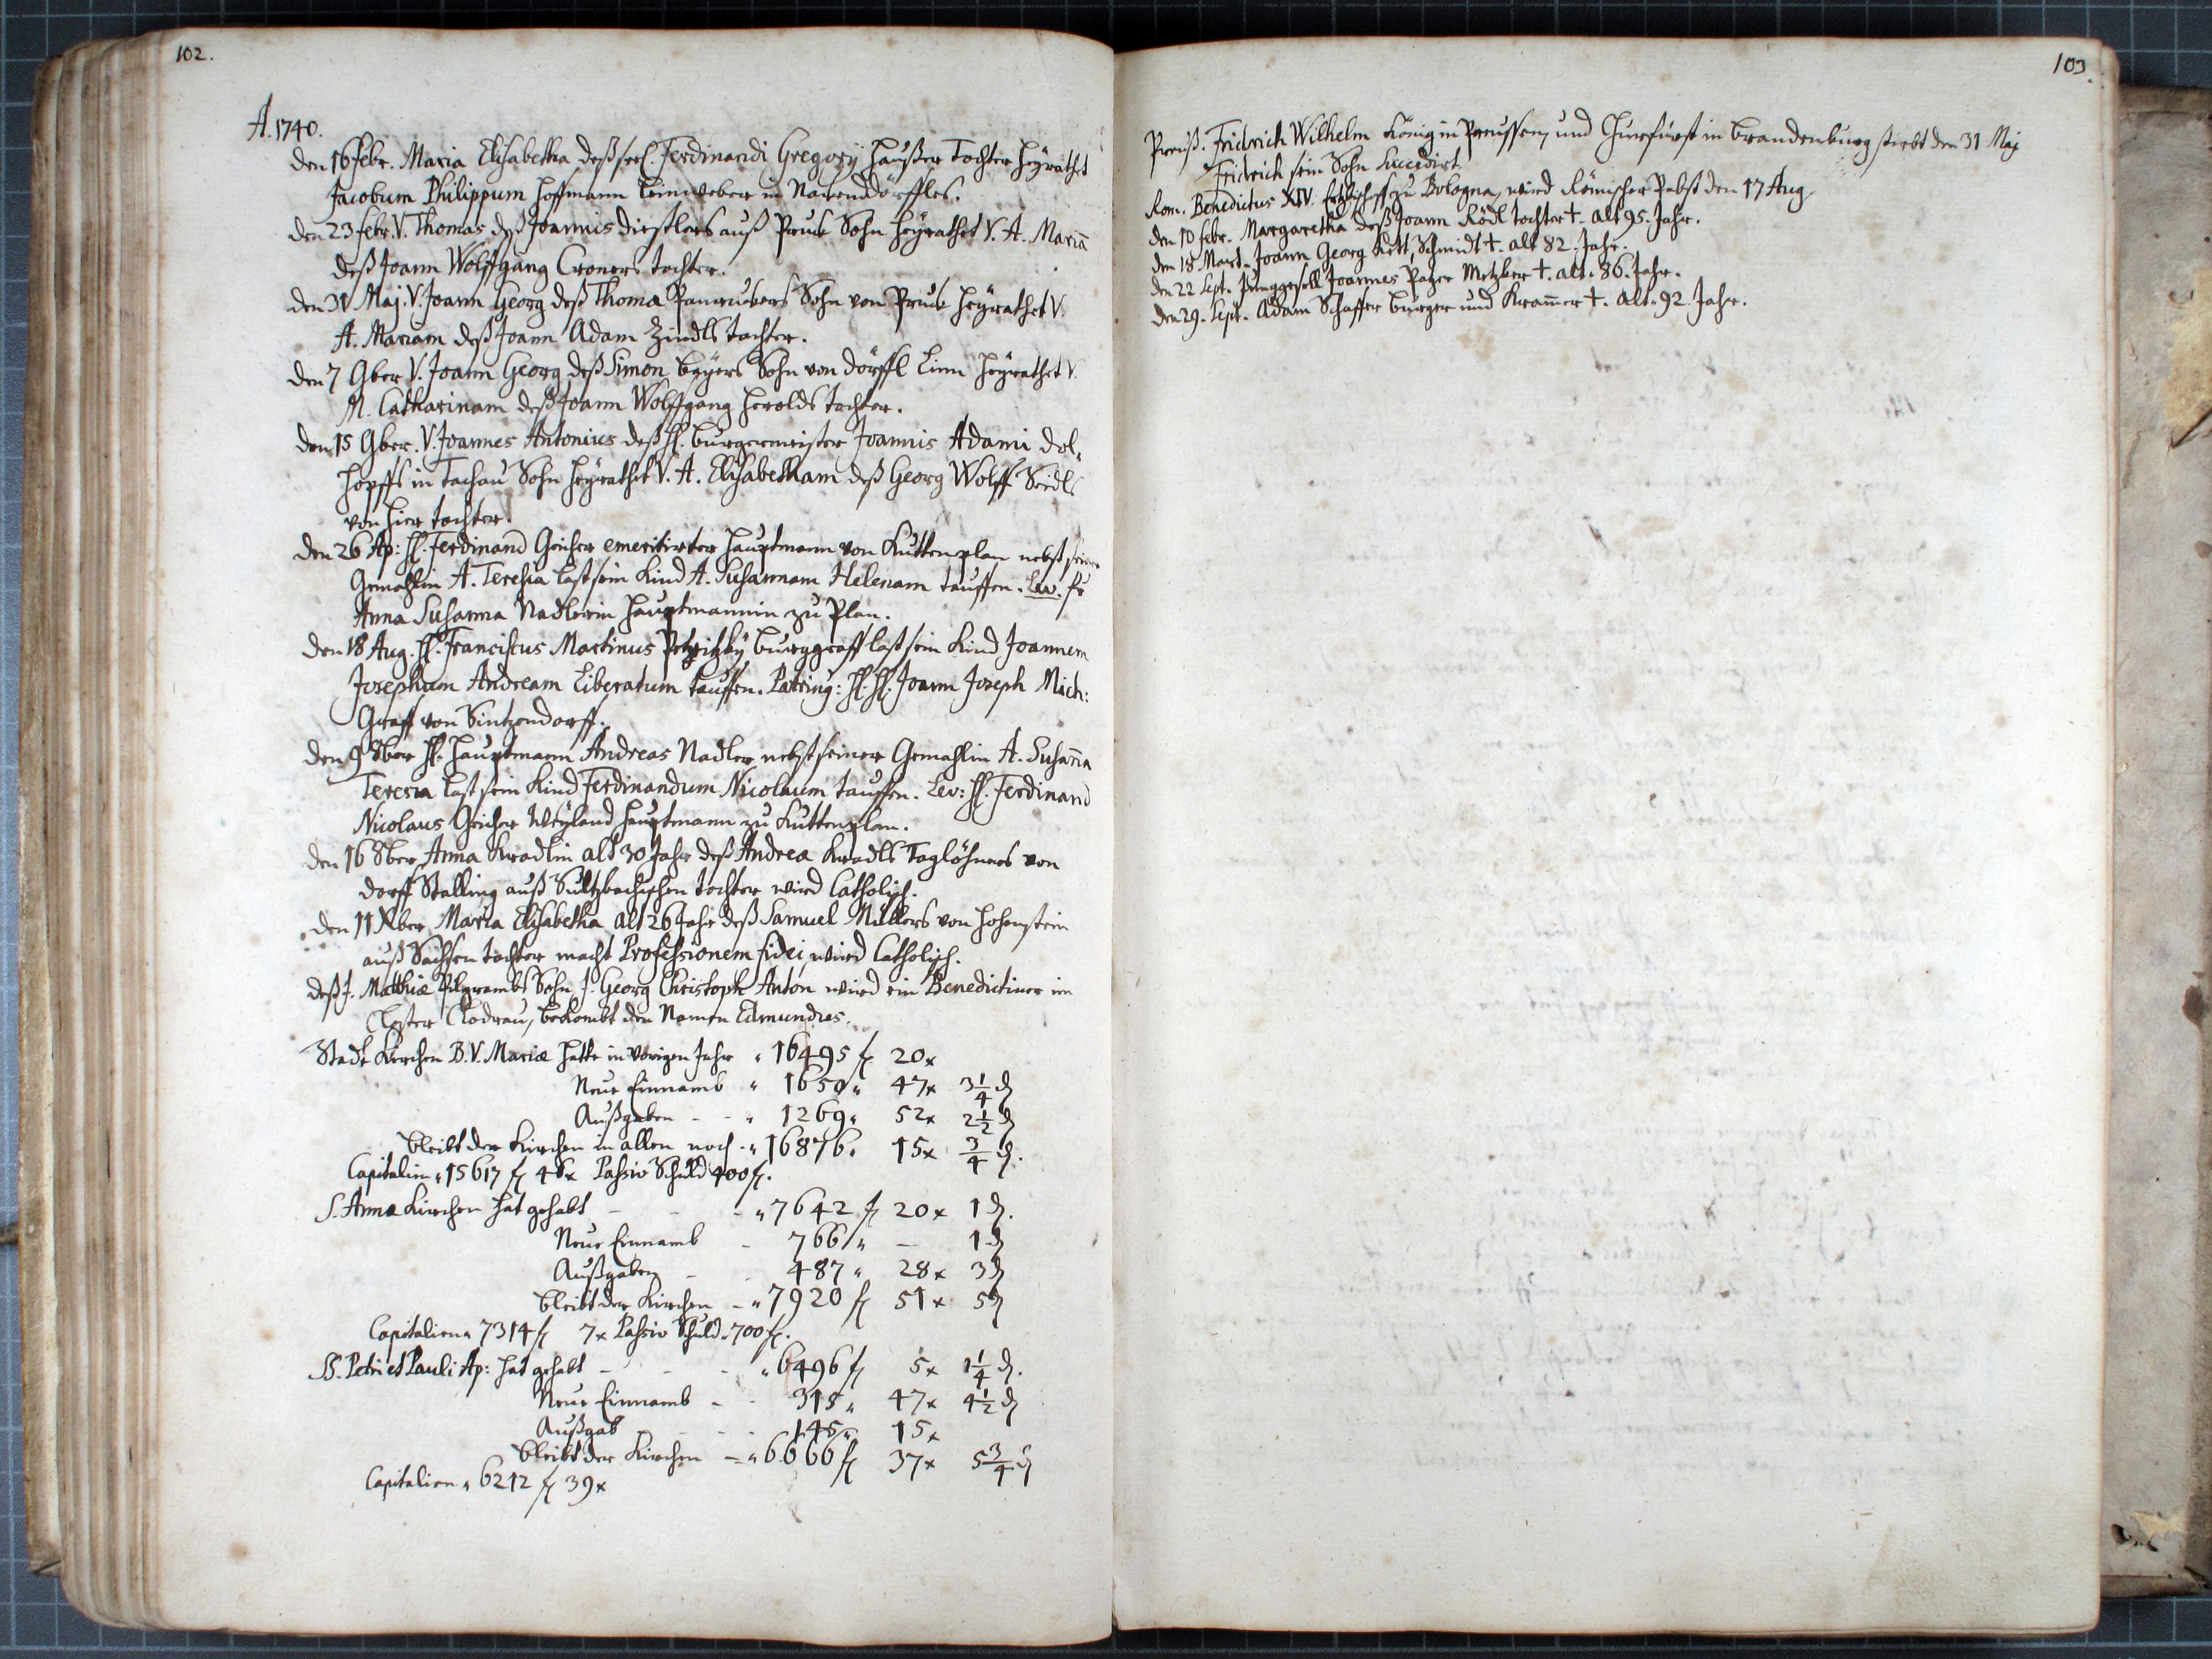 102.
A. 1740.
den 16 febr. Maria Elisabetha deß seel. Ferdinandi Gregorÿ Haußer Tochter heÿrathet
Jacobum Philippum Hoffmann Leinweber in Nauenddörffles.
den 23 febr. V. Thomas deß Joannis dirstlers auß Pruk Sohn heÿrathet V. A. Mariā
deß Joann Wolffgang Croners tochter.
den 31 Maj. V. Joann Georg deß Thoma Pamrukers Sohn von Pruk heÿrathet V.
A. Mariam deß Joann Adam Zindls tochter.
den 7 9ber V. Joann Georg deß Simon Beÿers Sohn von dörffl Linn heÿrathet V.
M. Catharinam deß Joann Wolffgang Herolds tochter.
den 15 9ber. V. Joannes Antonius deß H. burgermeister Joannis Adami Dol-
hopffs in Tachau Sohn heÿrathet V. A. Elisabetham deß Georg Wolff Seidls
von hier tochter.
den 26 Ap: H. Ferdinand Geicher emeritirter Hauptmann von Kuttenplan nebst seiner
Gemahlin A. Teresia last sein Kind A. Susannam Helenam tauffen. Lev. fr
Anna Susanna Nadlerin Hauptmannin zu Plan.
den 18 Aug. H. Franciscus Martinus burggraff last sein Kind Joannem
Josephum Andream Liberatum tauffen. Patring: H. H. Joann Joseph Mich:
Graff von Sintzendorff.
den 9 8ber H. Hauptmann Andreas Nadler nebst seiner Gemahlin A. Susaña
Teresia last sein Kind Ferdinandum Nicolaum tauffen. Lev: H. Ferdinand
Nicolaus Geicher Weÿland Hauptmann zu Kuttenplan.
den 16 8ber Anna Kradlin alt 30 Jahr deß Andrea Kradls Taglöhners von
dorff Stalling auß Sultzbachischen tochter wird Catholisch.
den 11 Xber Maria Elisabetha alt 26 Jahr deß Samuel Müllers von Hohenstein
auß Sachsen tochter macht Professionem fidei, wird Catholisch.
deß J. Matthiæ Pilgrambs Sohn J. Georg Christoph Anton wird ein Benedictiner im
Closter Cladrau, bekombt den Namen Edmundus.
Stadt Kirchen B. V. Mariæ hatte in vorigen Jahr „ 16495 fl 20x
Neue Einnamb „ 1650 „ 47x 3 1/4 d
Außgaben - - „ 1269 „ 52x 2 1/2 d
bleibt der Kirchen in allen noch - „ 16876 „ 15x 3/4 d.
Capitalien „ 15617 fl 46x Passiv Schuld 400 fl.
S. Anna Kirchen hat gehabt - - - „ 7642 fl 20x 1 d.
Neue Einnamb - 766 „ — 1 d
Außgaben - - 487 „ 28x 3 d
bleibt der Kirchen - „ 7920 fl 51x 5 d
Capitalien „ 7314 fl 7x Passiv Schuld „ 700 fl.
SS. Petri et Pauli Ap: hat gehabt - - - „ 6496 fl 5x 1 1/4 d.
Neue Einnamb - - 315 „ 47x 4 1/2 d
Außgab - - - 145 „ 15x
bleibt der Kirchen - „ 6666 fl 37x 5 3/4 d
Capitalien „ 6212 fl 39x
103.
Preuß. Fridrich Wilhelm König in Preussen, und Churfürst in Brandenburg stirbt den 31 Maj
Fridrich sein Sohn Succedirt.
Rom. Benedictus XIV. Ertzbischoff zu Bologna, wird Römischer Pabst den 17 Aug.
den 10 febr. Margaretha deß Joann Rödl tochter †. alt 95. Jahr.
den 18 Mart. Joann Georg Kett, Schmidt †. alt 82. Jahr.
den 22 Sept. Junggesell Joannes Metzker †. alt. 86. Jahr.
den 29. Sept. Adam Schaffer burger und Kram̄er †. alt. 92 Jahr.